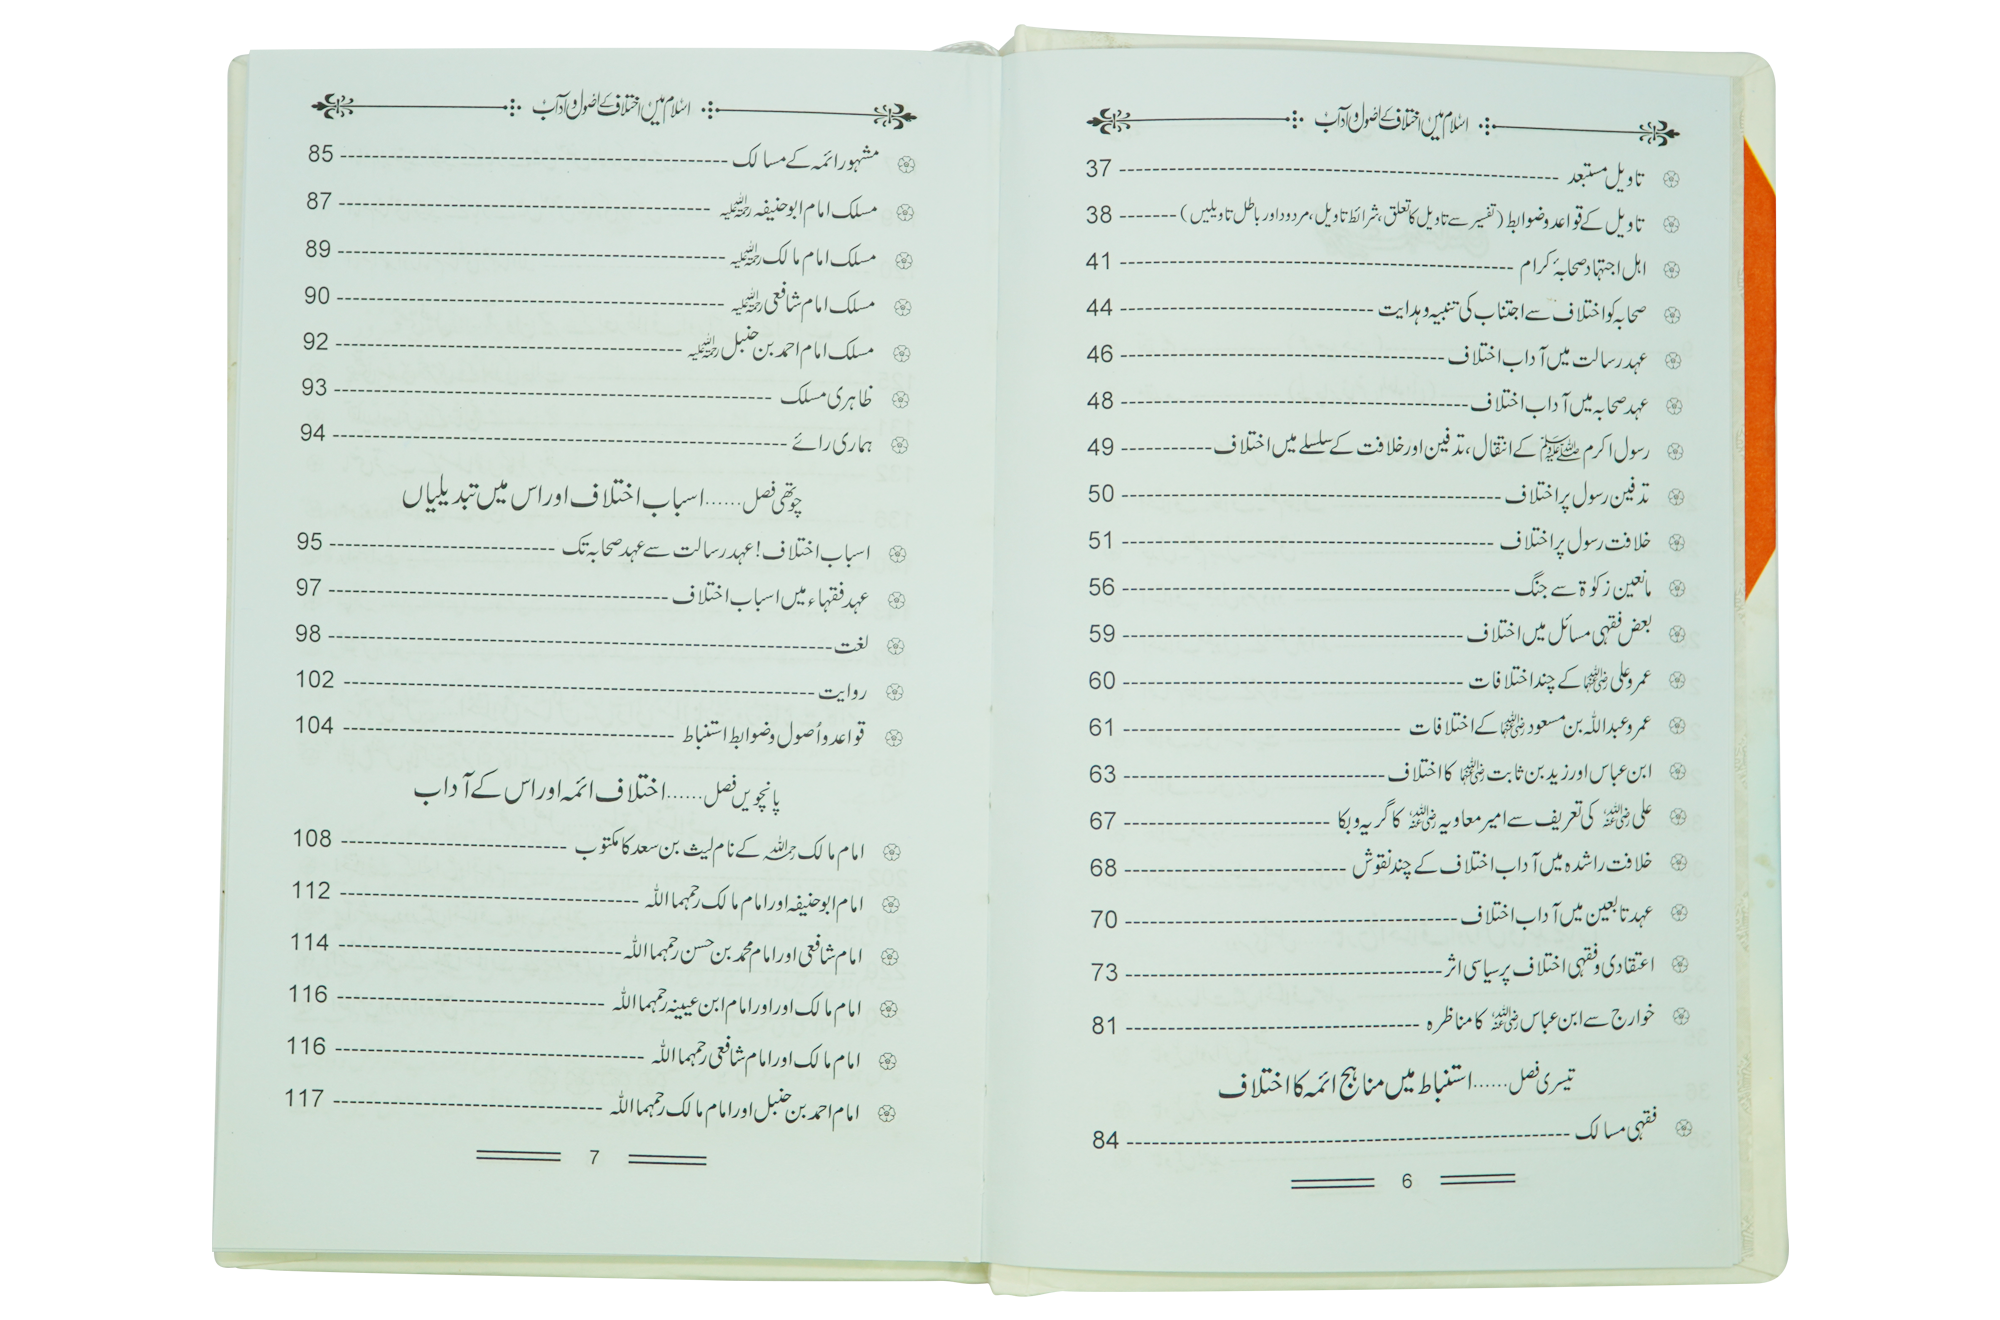 اسلام میں اختلاف کے اصول و آداب
تاویل مستبعد 37
تاویل کے قواعد و ضوابط (تفسیر سے تاویل کا تعلق، شرائط تاویل، مردود اور باطل تاویلیں) 38
اہل اجتہاد صحابۂ کرام 41
صحابہ کو اختلاف سے اجتناب کی تنبیہ و ہدایت 44
عہد رسالت میں آداب اختلاف 46
عہد صحابہ میں آداب اختلاف 48
رسول اکرم ﷺ کے انتقال، تدفین اور خلافت کے سلسلے میں اختلاف 49
تدفین رسول پر اختلاف 50
خلافت رسول پر اختلاف 51
مانعین زکوٰۃ سے جنگ 56
بعض فقہی مسائل میں اختلاف 59
عمر و علی رضی اللہ عنہما کے چند اختلافات 60
عمر و عبداللہ بن مسعود رضی اللہ عنہما کے اختلافات 61
ابن عباس اور زید بن ثابت رضی اللہ عنہما کا اختلاف 63
علی رضی اللہ عنہ کی تعریف سے امیر معاویہ رضی اللہ عنہ کا گریہ و بکا 67
خلافت راشدہ میں آداب اختلاف کے چند نقوش 68
عہد تابعین میں آداب اختلاف 70
اعتقادی و فقہی اختلاف پر سیاسی اثر 73
خوارج سے ابن عباس رضی اللہ عنہ کا مناظرہ 81
تیسری فصل...... استنباط میں مناہج ائمہ کا اختلاف
فقہی مسالک 84
6
اسلام میں اختلاف کے اصول و آداب
مشہور ائمہ کے مسالک 85
مسلک امام ابو حنیفہ رحمۃ اللہ علیہ 87
مسلک امام مالک رحمۃ اللہ علیہ 89
مسلک امام شافعی رحمۃ اللہ علیہ 90
مسلک امام احمد بن حنبل رحمۃ اللہ علیہ 92
ظاہری مسلک 93
ہماری رائے 94
چوتھی فصل...... اسباب اختلاف اور اس میں تبدیلیاں
اسباب اختلاف! عہد رسالت سے عہد صحابہ تک 95
عہد فقہاء میں اسباب اختلاف 97
لغت 98
روایت 102
قواعد و اُصول و ضوابط استنباط 104
پانچویں فصل...... اختلاف ائمہ اور اس کے آداب
امام مالک رحمہ اللہ کے نام لیث بن سعد کا مکتوب 108
امام ابو حنیفہ اور امام مالک رحمہما اللہ 112
امام شافعی اور امام محمد بن حسن رحمہما اللہ 114
امام مالک اور اور امام ابن عیینہ رحمہما اللہ 116
امام مالک اور امام شافعی رحمہما اللہ 116
امام احمد بن حنبل اور امام مالک رحمہما اللہ 117
7